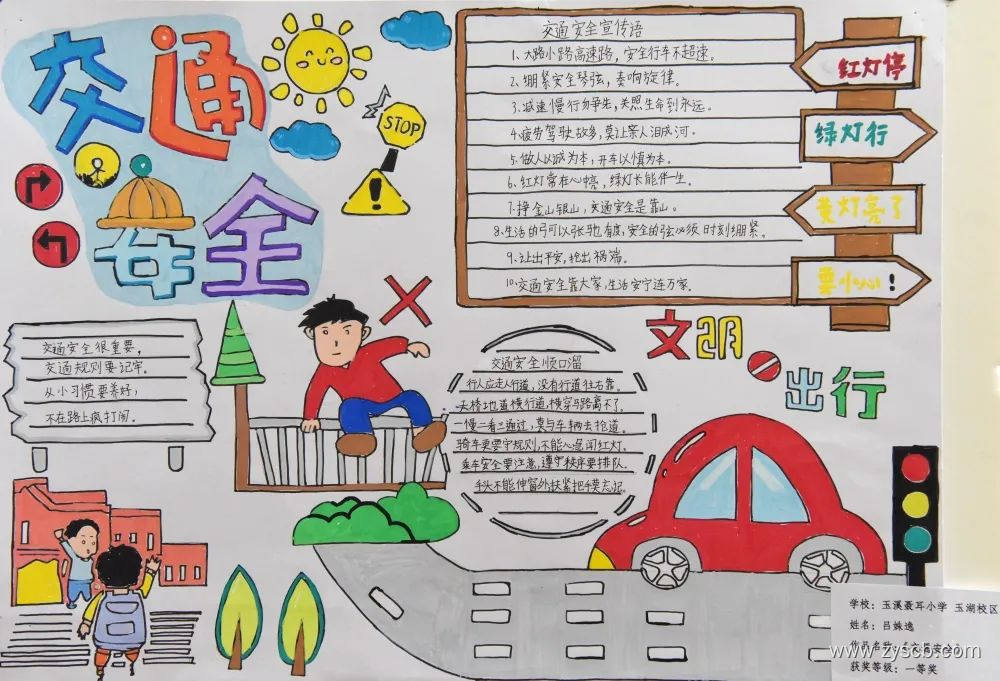 交通
安全
STOP
交通安全宣传语
1、大路小路高速路，安全行车不超速。
2、绷紧安全琴弦，奏响旋律。
3、减速慢行勿争先，关照生命到永远。
4、疲劳驾驶故多，莫让亲人泪成河。
5、做人以诚为本，开车以慎为本。
6、红灯常在心中亮，绿灯长能伴一生。
7、挣金山银山，交通安全是靠山。
8、生活的弓可以张弛有度，安全的弦必须时刻绷紧。
9、让出平安，抢出祸端。
10、交通安全靠大家，生活安宁连万家。
红灯停
绿灯行
黄灯亮了
要小心！
交通安全很重要，
交通规则要记牢。
从小习惯要养好，
不在路上疯打闹。
文明
出行
交通安全顺口溜
行人应走人行道，没有行道往右靠。
天桥地道横行道，横穿马路离不了。
一慢二看三通过，莫与车辆去抢道。
骑车更要守规则，不能心急闯红灯。
乘车安全要注意，遵守秩序要排队。
手头不能伸窗外，扶紧把手莫忘记。
学校：玉溪聂耳小学 玉湖校区
姓名：吕姝逸
作品名称：《交通安全》
获奖等级：一等奖
www.zyscb.com